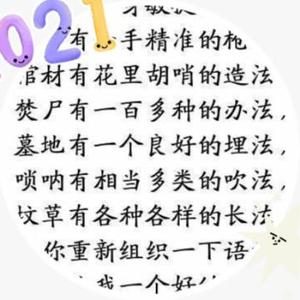 021
有 手精准的
棺材有花里胡哨的造法
焚尸有一百多种的办法，
墓地有一个良好的埋法，
唢呐有相当多类的吹法，
坟草有各种各样的长法
你重新组织一下语
我一个好